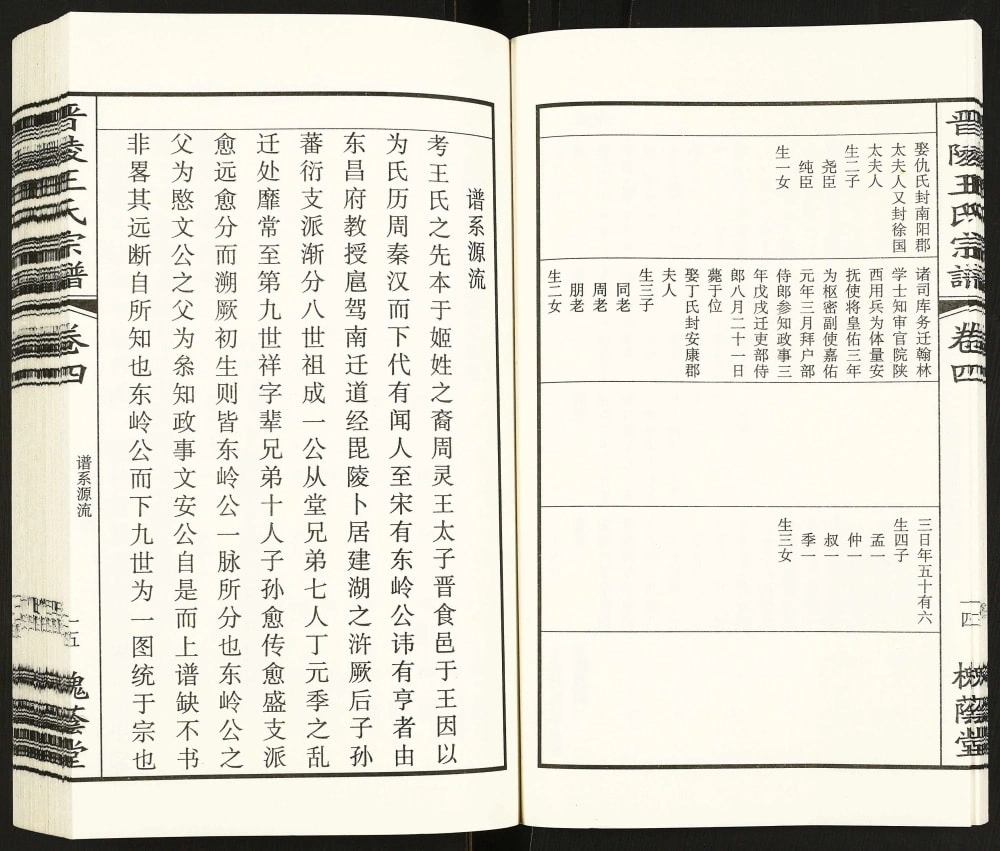 晋陵王氏宗谱
卷四
一四
槐荫堂
娶仇氏封南阳郡
太夫人又封徐国
太夫人
生二子
尧臣
纯臣
生一女
诸司库务迁翰林
学士知审官院陕
西用兵为体量安
抚使将皇佑三年
为枢密副使嘉佑
元年三月拜户部
侍郎参知政事三
年戊戌迁吏部侍
郎八月二十一日
薨于位
娶丁氏封安康郡
夫人
生三子
同老
周老
朋老
生二女
三日年五十有六
生四子
孟一
仲一
叔一
季一
生三女
谱系源流
考王氏之先本于姬姓之裔周灵王太子晋食邑于王因以
为氏历周秦汉而下代有闻人至宋有东岭公讳有亨者由
东昌府教授扈驾南迁道经毘陵卜居建湖之浒厥后子孙
蕃衍支派渐分八世祖成一公从堂兄弟七人丁元季之乱
迁处靡常至第九世祥字辈兄弟十人子孙愈传愈盛支派
愈远愈分而溯厥初生则皆东岭公一脉所分也东岭公之
父为愍文公之父为叅知政事文安公自是而上谱缺不书
非畧其远断自所知也东岭公而下九世为一图统于宗也
晋陵王氏宗谱
卷四
谱系源流
一五
槐荫堂